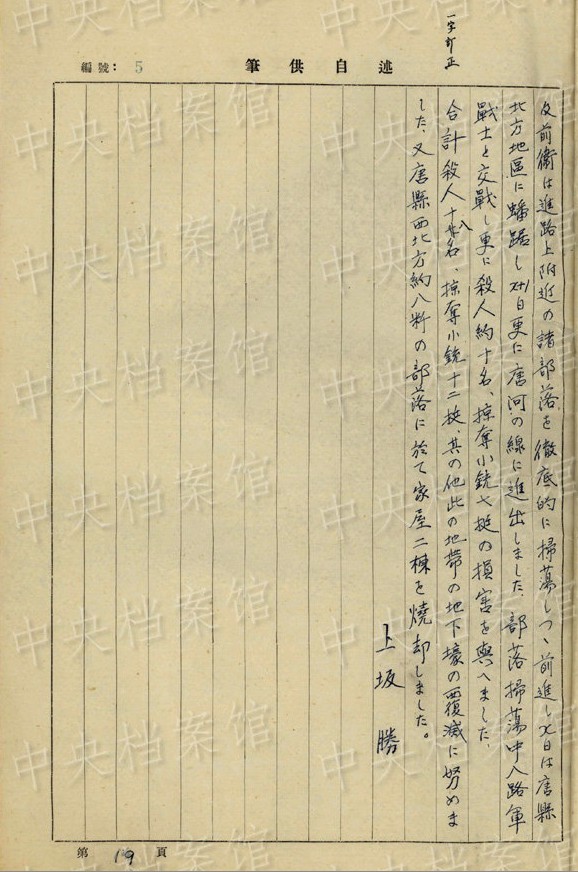 一字訂正
編號：5
述自供筆
及前衛は進路上附近の諸部落を徹底的に掃蕩しつゝ前進しX日は唐縣
北方地區に蟠踞しX+1日更に唐河の線に進出しました、部落掃蕩中八路軍
戰士と交戰し更に殺人約十名、掠奪小銃七挺の損害を與へました、
合計殺人十八名、掠奪小銃十二挺、其の他此の地帶の地下壕の覆滅に努めま
した、又唐縣西北方約八粁の部落に於て家屋二棟を燒却しました。
上坂勝
第19頁
中央档案馆